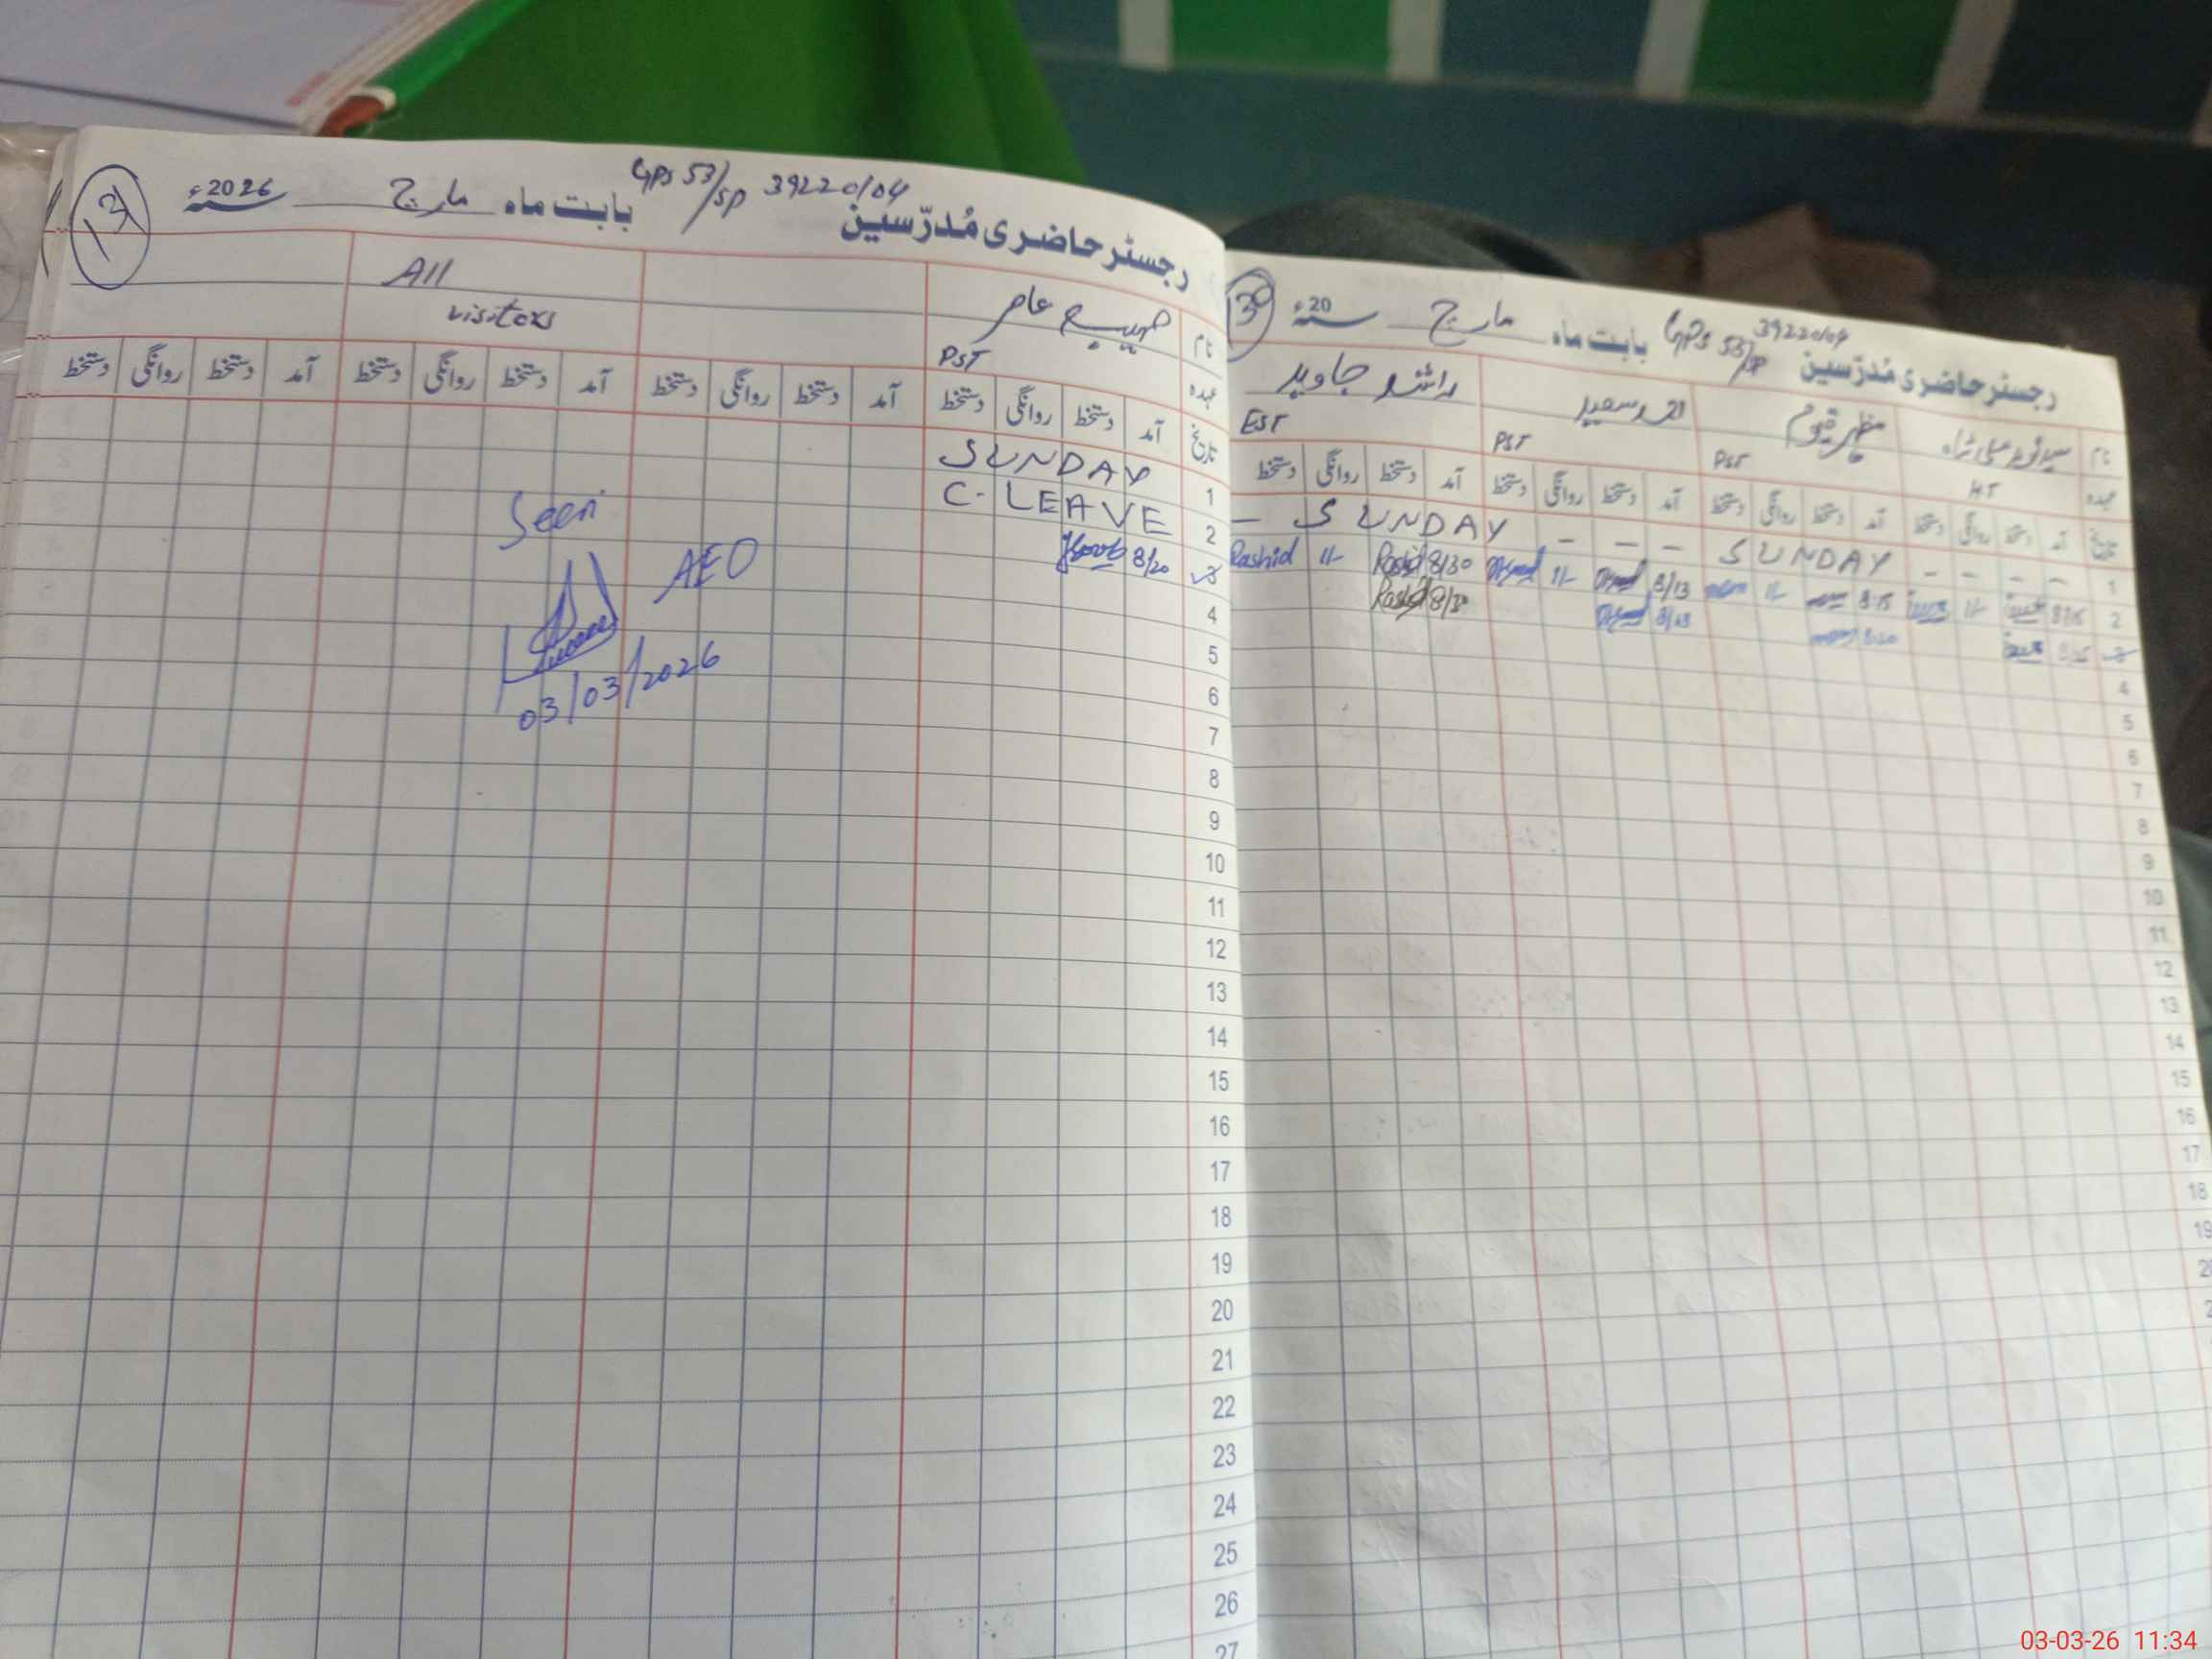 رجسٹر حاضری مُدرّسین بابت ماہ مارچ سنہ 2026ء
GPS 53/SP 39220/04
13
نام صہیب عامر
All
visitors
عہدہ PST
تاریخ آمد دستخط روانگی دستخط آمد دستخط روانگی دستخط آمد دستخط روانگی دستخط آمد دستخط روانگی دستخط
1 SUNDAY
2 C-LEAVE
3 8/20
4
5
6
7
8
9
10
11
12
13
14
15
16
17
18
19
20
21
22
23
24
25
26
27
Seen
AEO
03/03/2026
رجسٹر حاضری مُدرّسین بابت ماہ مارچ سنہ 20ء
GPS 53/SP 39220/04
نام مظہر قیوم احمد سعید راشد جاوید
عہدہ HT PST PST EST
تاریخ آمد دستخط روانگی دستخط آمد دستخط روانگی دستخط آمد دستخط روانگی دستخط آمد دستخط روانگی دستخط
1 - - - - SUNDAY - - - SUNDAY -
2 8/15 11- 8:15 11- 8/13 11- 8/30 Rashid 11- Rashid
3 8:20 8/13 8/30 Rashid
4
5
6
7
8
9
10
11
12
13
14
15
16
17
18
19
03-03-26 11:34